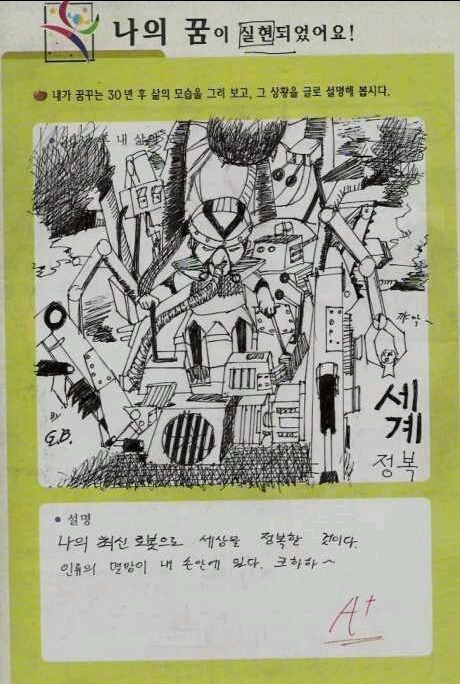 나의 꿈이 실현되었어요!
내가 꿈꾸는 30년 후 삶의 모습을 그려 보고, 그 상황을 글로 설명해 봅시다.
내 삶의
깨악~
by
G.B.
세계
정복
설명
나의 최신 로봇으로 세상을 정복할 것이다.
인류의 멸망이 내 손안에 있다. 크하하~
A+